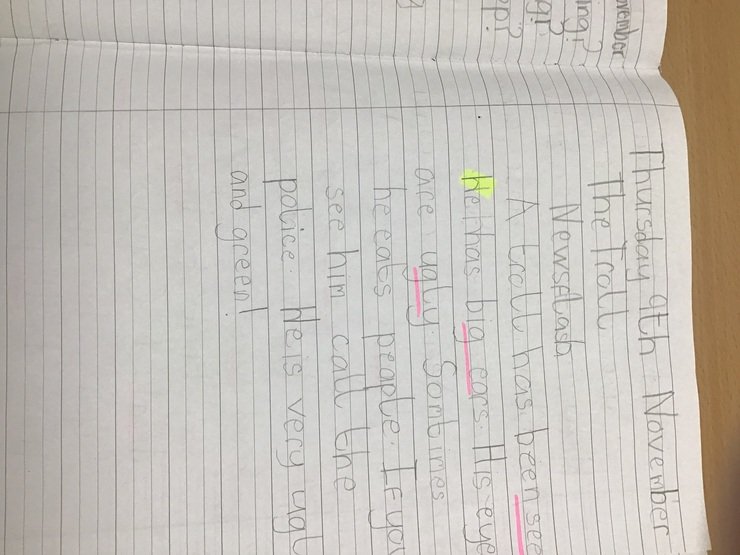 Thursday 9th November
The Troll
Newsflash
A troll has been see
He has big ears. His eye
are ugly. Somtimes
he eats people. If you
see him call the
police. He is very ugl
and green!